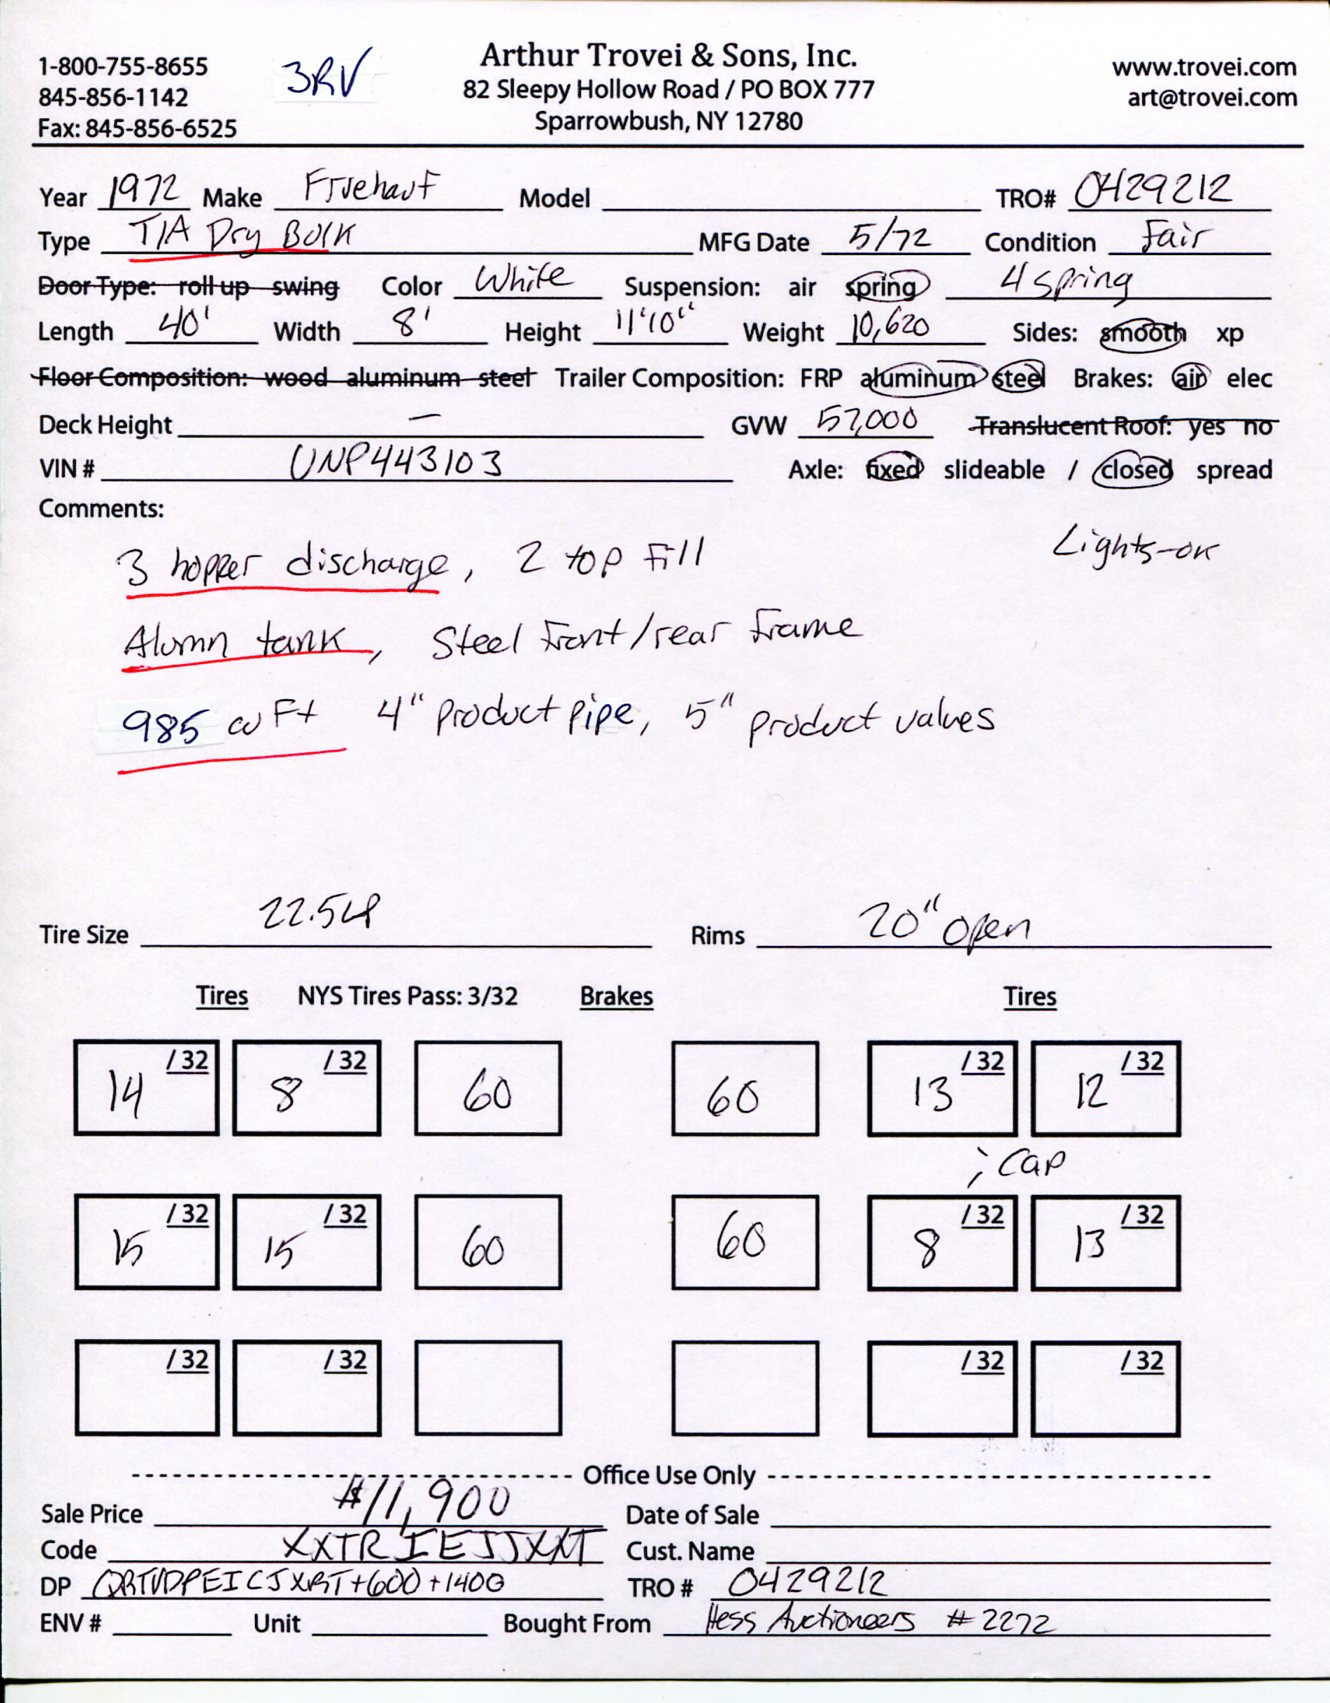 Arthur Trovei & Sons, Inc.
1-800-755-8655 3RV 82 Sleepy Hollow Road / PO BOX 777 www.trovei.com
845-856-1142 Sparrowbush, NY 12780 art@trovei.com
Fax: 845-856-6525
Year 1972 Make Fruehauf Model TRO# 0429212
Type T/A Dry Bulk MFG Date 5/72 Condition Fair
Door Type: roll up swing Color White Suspension: air spring 4 spring
Length 40' Width 8' Height 11'10" Weight 10,620 Sides: smooth xp
Floor Composition: wood aluminum steel Trailer Composition: FRP aluminum steel Brakes: air elec
Deck Height — GVW 57,000 Translucent Roof: yes no
VIN # UNP443103 Axle: fixed slideable / closed spread
Comments:
3 hopper discharge, 2 top fill Lights-ok
Alumn tank, Steel front/rear frame
985 cu Ft 4" product pipe, 5" product valves
Tire Size 22.5LP Rims 20" open
Tires NYS Tires Pass: 3/32 Brakes Tires
14 /32 8 /32 60 60 13 /32 12 /32
; Cap
15 /32 15 /32 60 60 8 /32 13 /32
/32 /32 /32 /32
Office Use Only
Sale Price $11,900 Date of Sale
Code XXTRIEJJXXT Cust. Name
DP +600+1400 TRO # 0429212
ENV # Unit Bought From Hess Auctioneers #2272